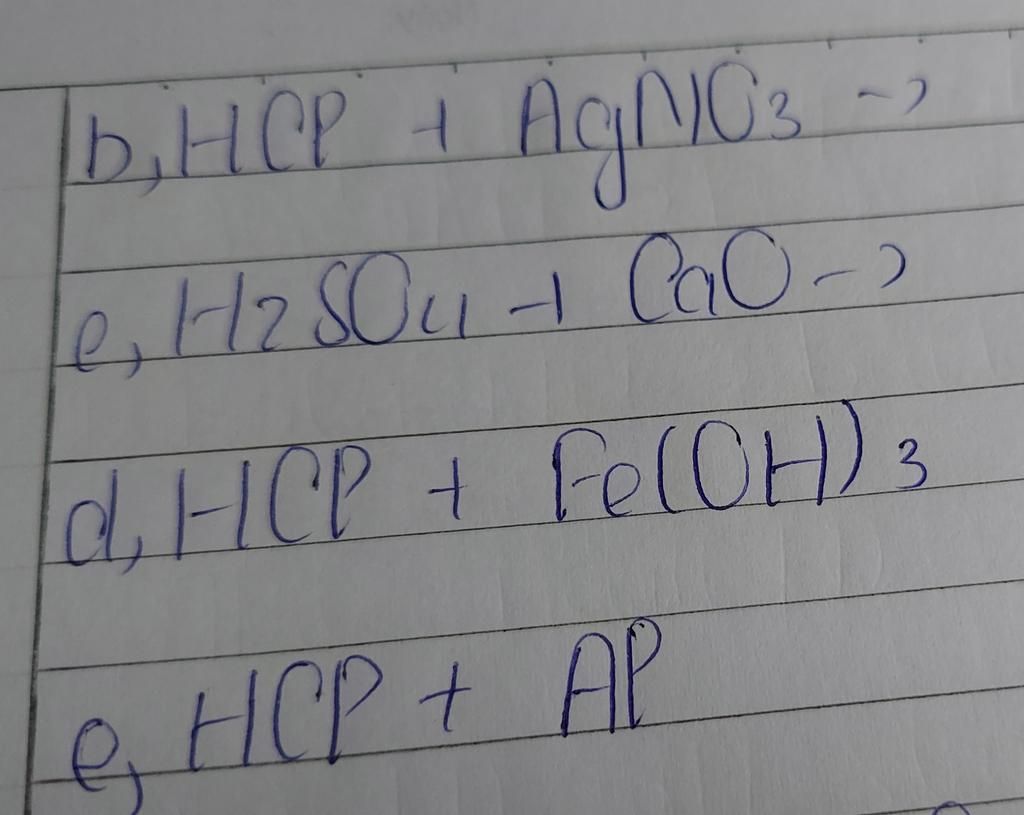 b, HCl + AgNO3 ->
c, H2SO4 + CaO ->
d, HCl + Fe(OH)3
e, HCl + Al